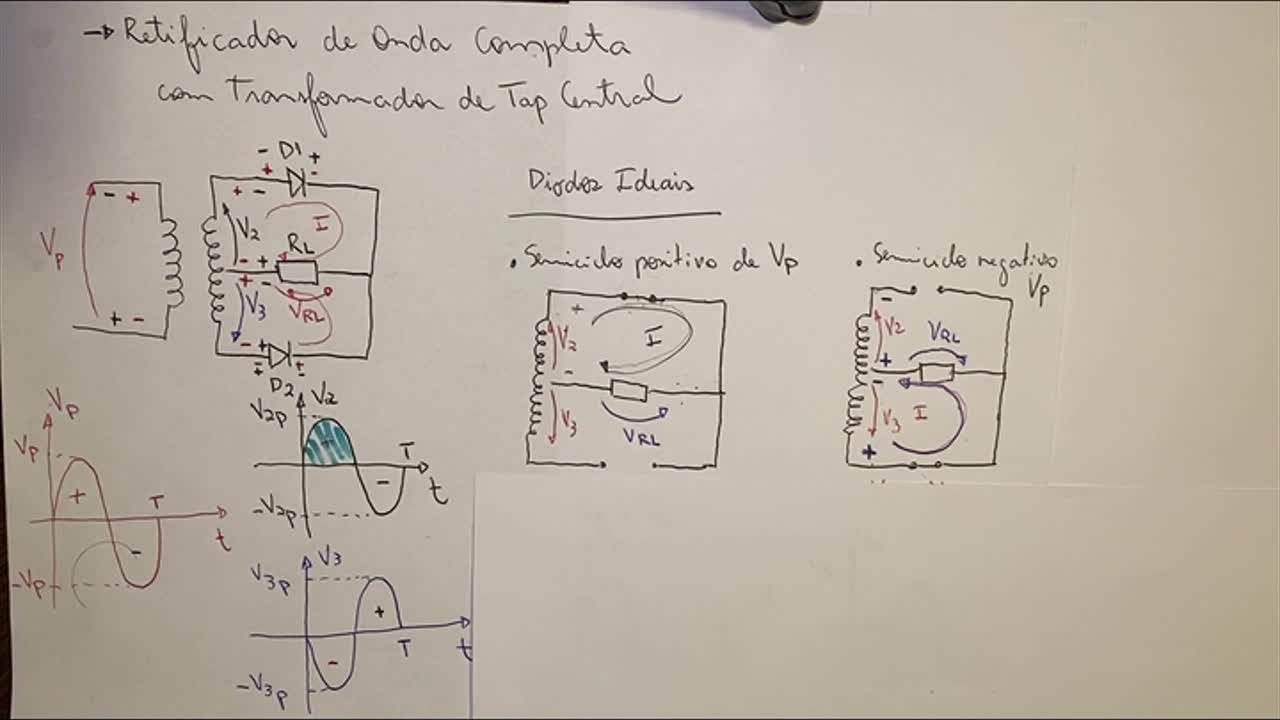 → Retificador de Onda Completa
com Transformador de Tap Central
- D1 +
+ -
- +
+ -
Vp
V2
I
RL
- +
+ -
V3
VRL
+ -
- +
D2
Diodos Ideais
• Semiciclo positivo de Vp
• Semiciclo negativo
Vp
+
V2
I
-
V3
VRL
-
V2
VRL
+
-
V3
I
+
Vp
Vp
+
T
-
t
-Vp
V2
V2p
+
T
-
t
-V2p
V3
V3p
+
T
t
-
-V3p